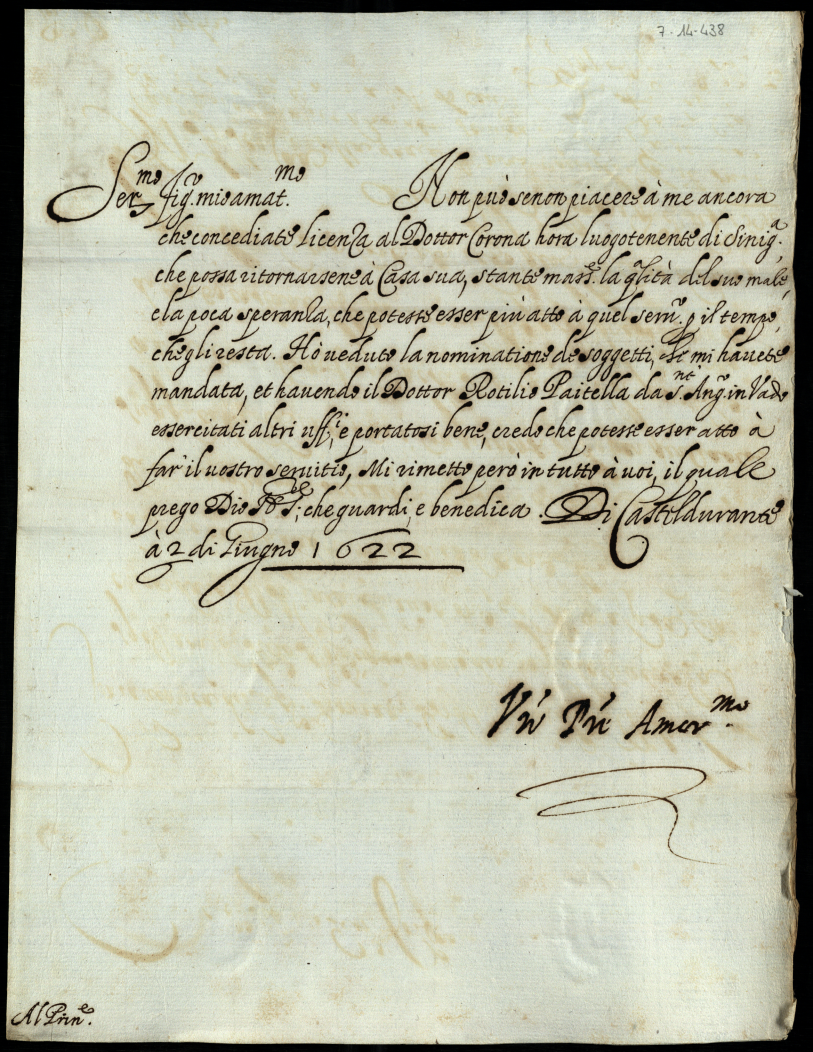 7-14-438
Ser.mo Sig.r mio amat.mo Non può se non piacere à me ancora
che concediate Licenza al Dottor Corona hora luogotenente di Sinig.a
che possa ritornarsene à Casa sua, stante mass.e la q.lità del suo male,
e la poca speranza, che potesse esser più atto à quel serui.o p il tempo,
che gli resta. Hò veduto la nominatione de soggetti, che mi havete
mandata, et havendo il Dottor Rotilio Paitella da S.nt' Ang.o in Vado
essercitati altri uff.i, e portatosi bene, credo che potesse esser atto à
far' il vostro servitio, Mi rimetto però in tutto à voi, il quale
prego Dio che guardi, e benedica. Di Casteldurante
à 2 di Giugno 1622
Vrõ Prẽ Amor.mo
Al Prin.e